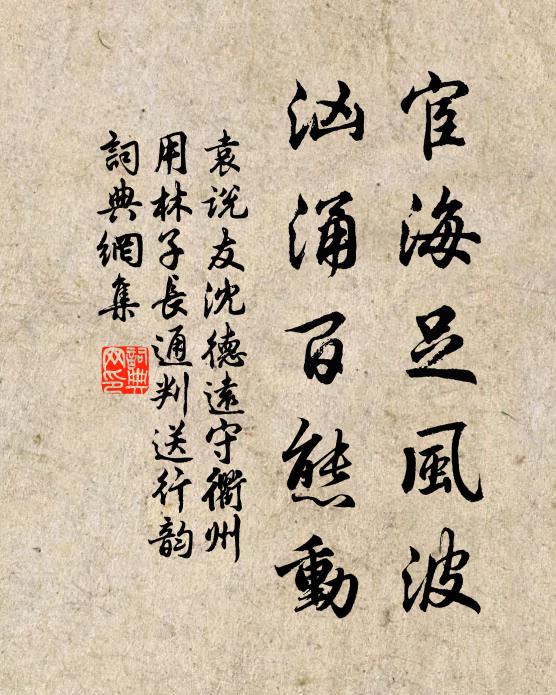 宦海足風波
汹涌百態動
袁说友沈德遠守衢州
用林子長通判送行韵
詞典網集
詞典
网印